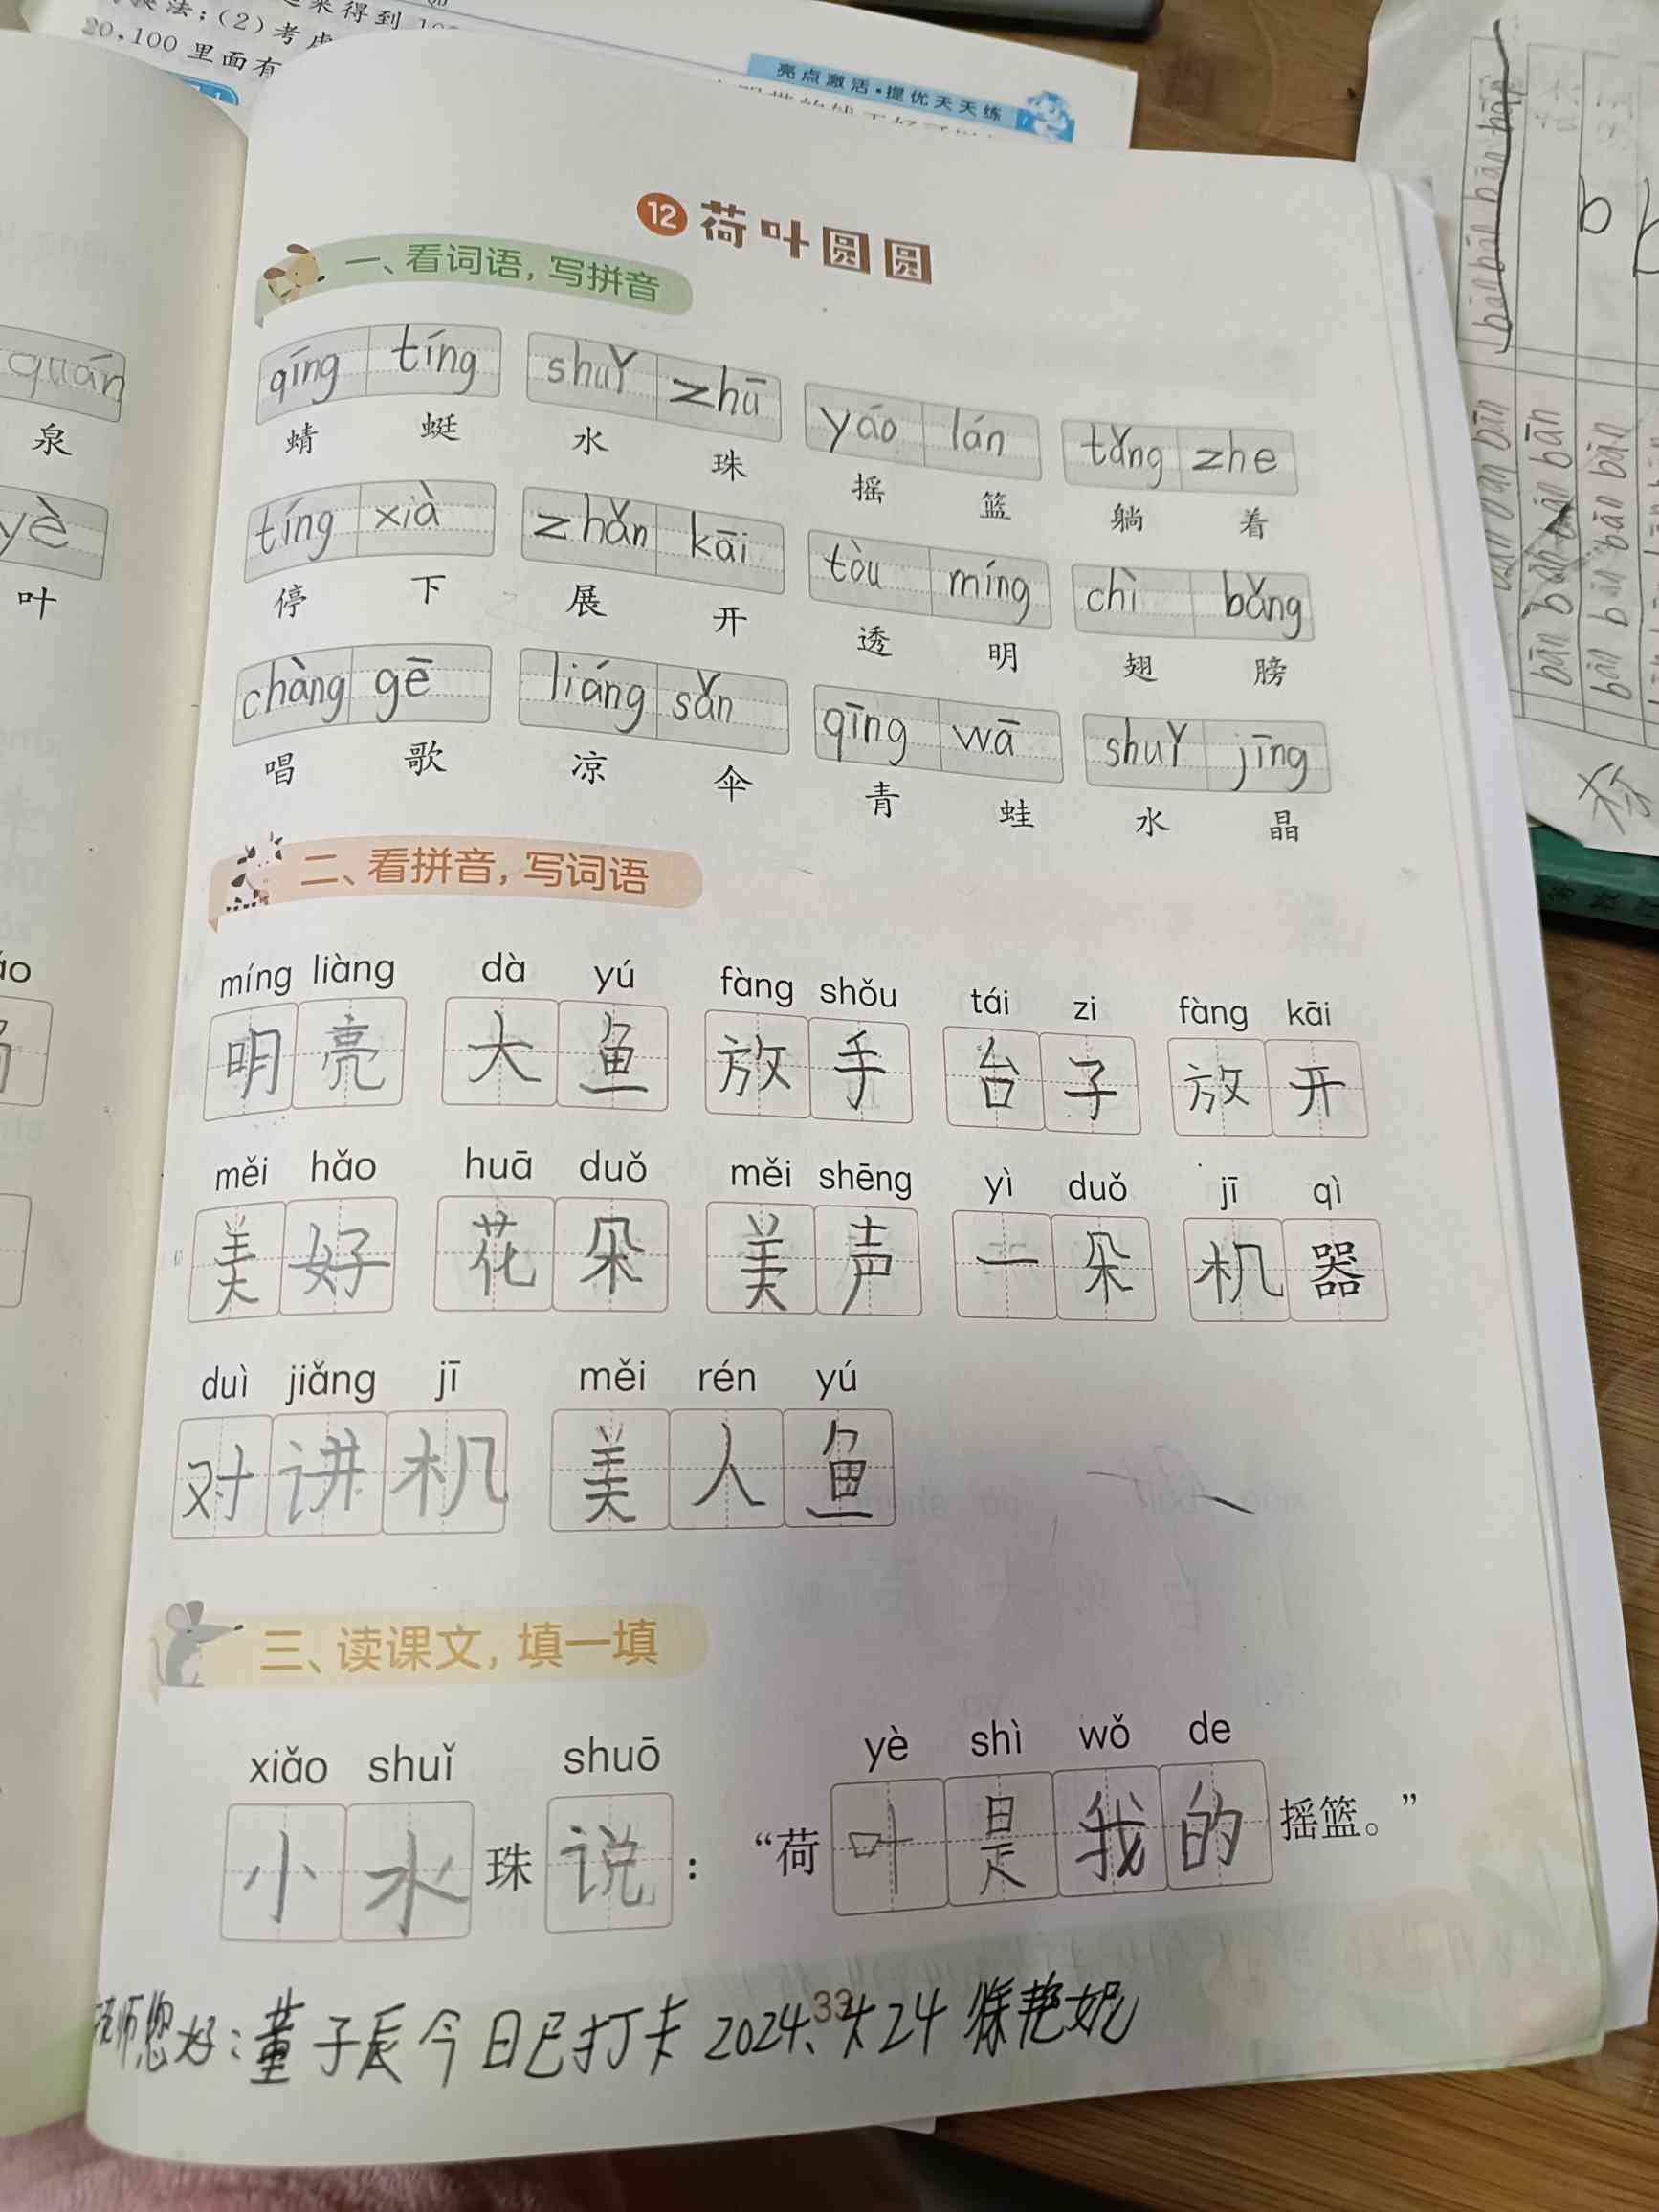 20,100 里面有
亮点激活·提优天天练
12 荷叶圆圆
一、看词语,写拼音
qíng tíng shuǐ zhū yáo lán tǎng zhe
蜻 蜓 水 珠 摇 篮 躺 着
tíng xià zhǎn kāi tòu míng chì bǎng
停 下 展 开 透 明 翅 膀
chàng gē liáng sǎn qīng wā shuǐ jīng
唱 歌 凉 伞 青 蛙 水 晶
二、看拼音,写词语
míng liàng dà yú fàng shǒu tái zi fàng kāi
明亮 大鱼 放手 台子 放开
měi hǎo huā duǒ měi shēng yì duǒ jī qì
美好 花朵 美声 一朵 机器
duì jiǎng jī měi rén yú
对讲机 美人鱼
三、读课文,填一填
xiǎo shuǐ shuō yè shì wǒ de
小水珠说:“荷叶是我的摇篮。”
33
老师您好:董子辰今日已打卡 2024.4.24 徐艳妮
quán
泉
yè
叶